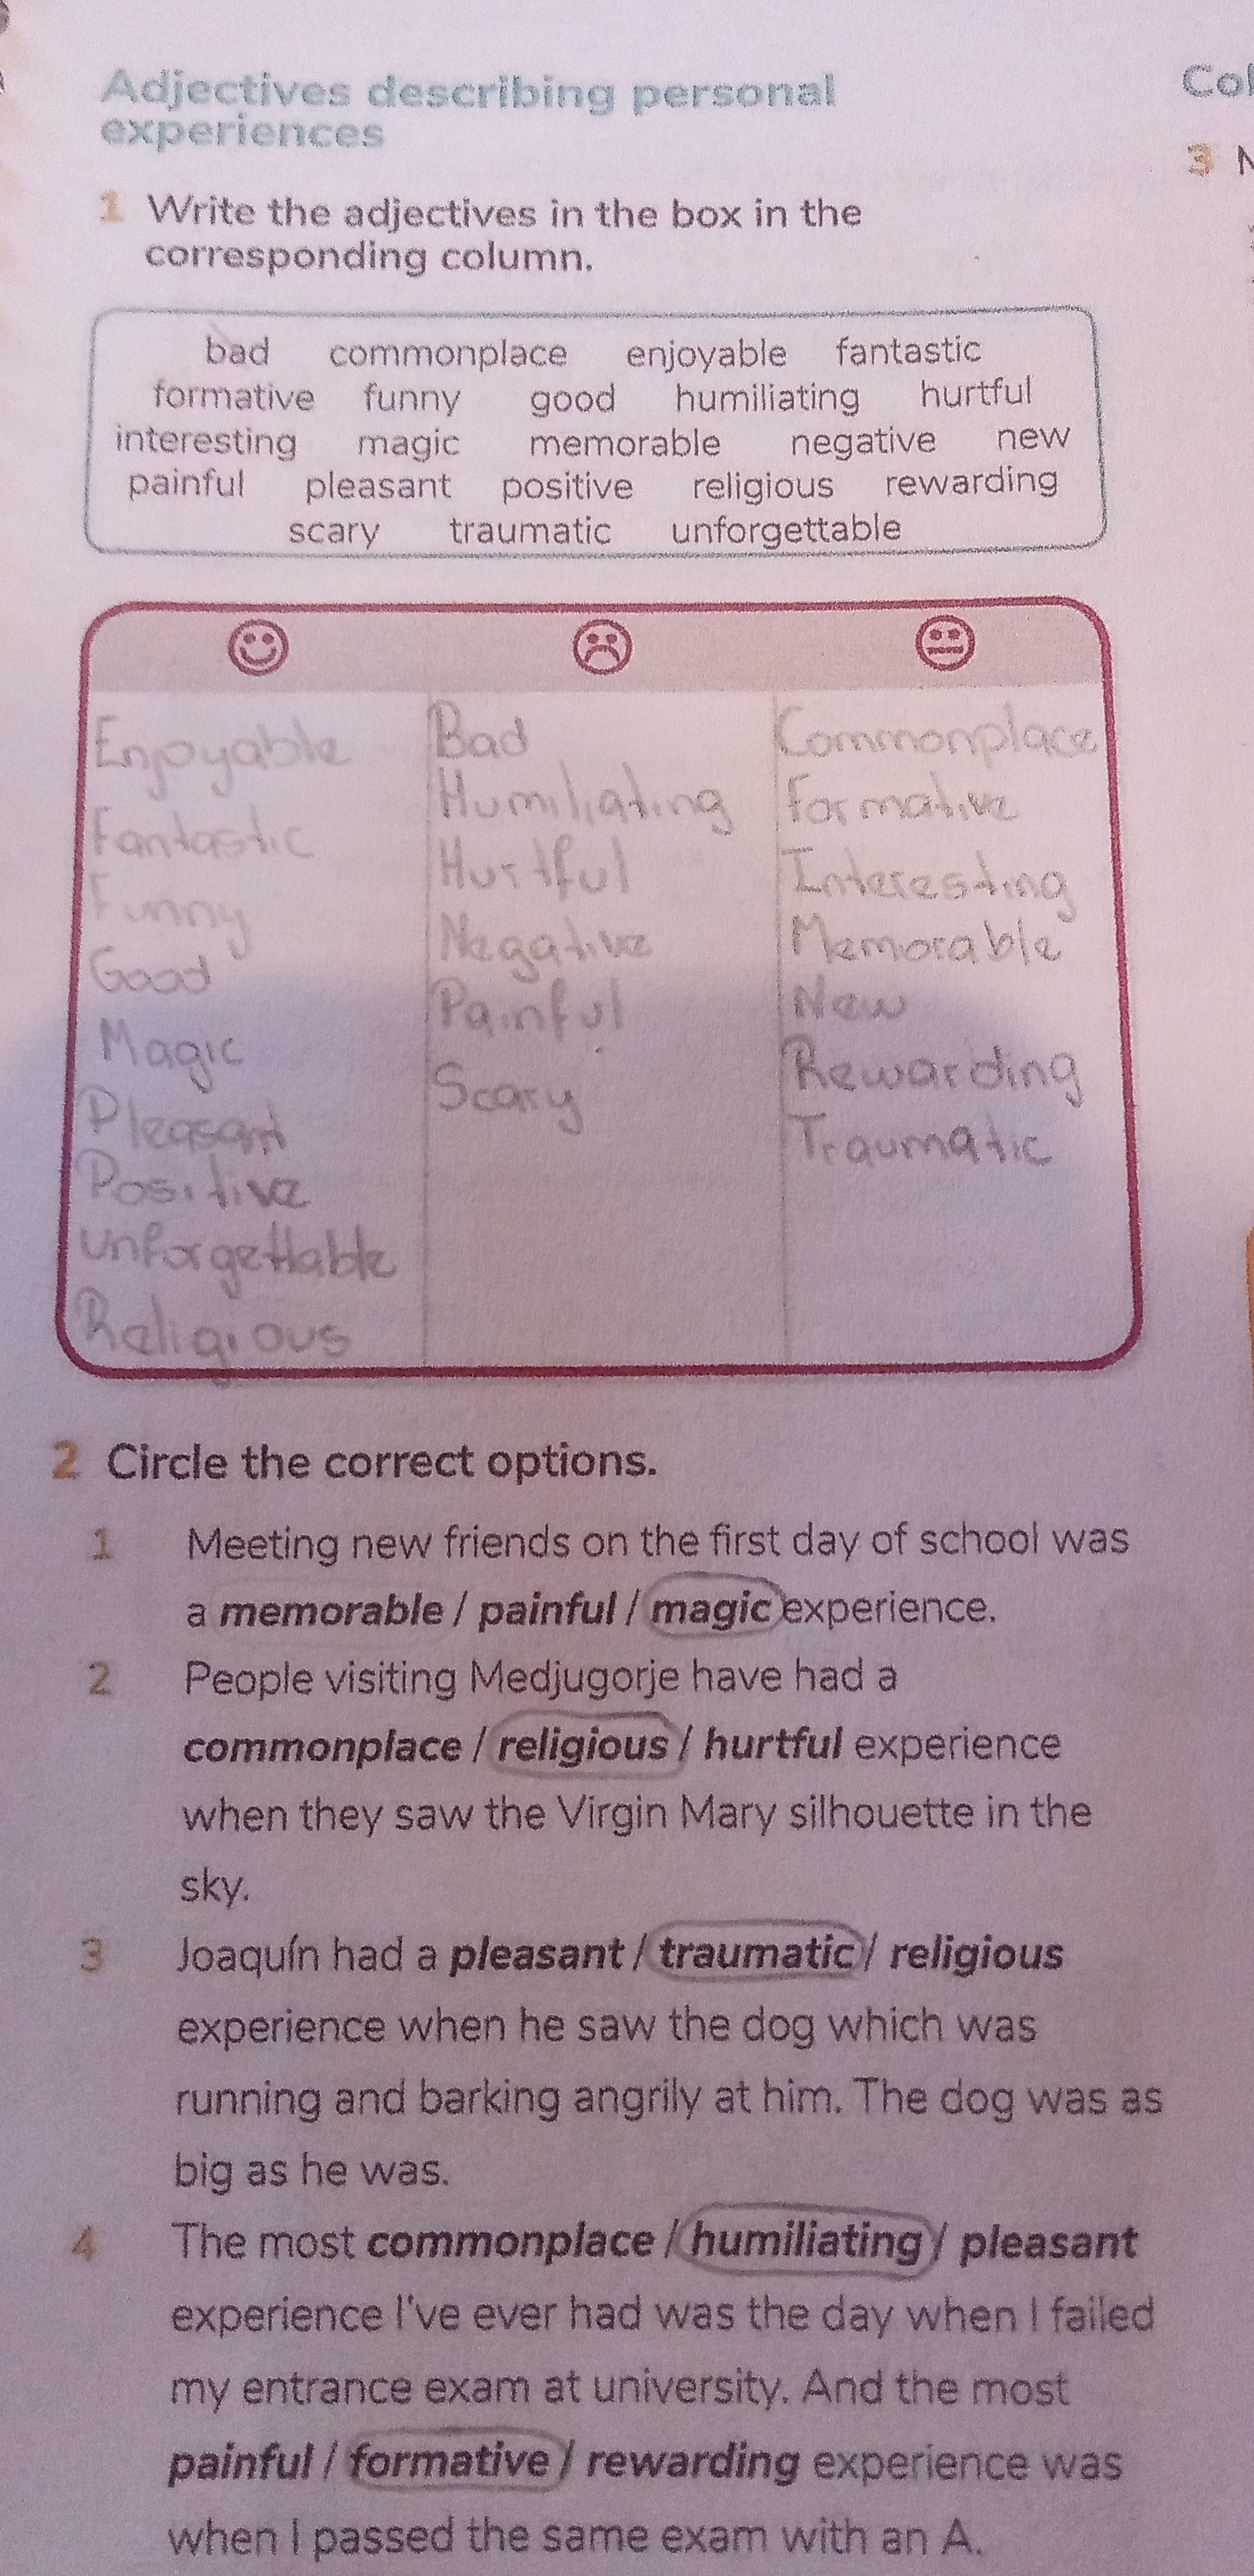 Adjectives describing personal
experiences
1 Write the adjectives in the box in the
corresponding column.
bad commonplace enjoyable fantastic
formative funny good humiliating hurtful
interesting magic memorable negative new
painful pleasant positive religious rewarding
scary traumatic unforgettable
Enjoyable
Fantastic
Funny
Good
Magic
Pleasant
Positive
Unforgettable
Religious
Bad
Humiliating
Hurtful
Negative
Painful
Scary
Commonplace
Formative
Interesting
Memorable
New
Rewarding
Traumatic
2 Circle the correct options.
1 Meeting new friends on the first day of school was
a memorable / painful / magic experience.
2 People visiting Medjugorje have had a
commonplace / religious / hurtful experience
when they saw the Virgin Mary silhouette in the
sky.
3 Joaquín had a pleasant / traumatic / religious
experience when he saw the dog which was
running and barking angrily at him. The dog was as
big as he was.
4 The most commonplace / humiliating / pleasant
experience I've ever had was the day when I failed
my entrance exam at university. And the most
painful / formative / rewarding experience was
when I passed the same exam with an A.
Col
3